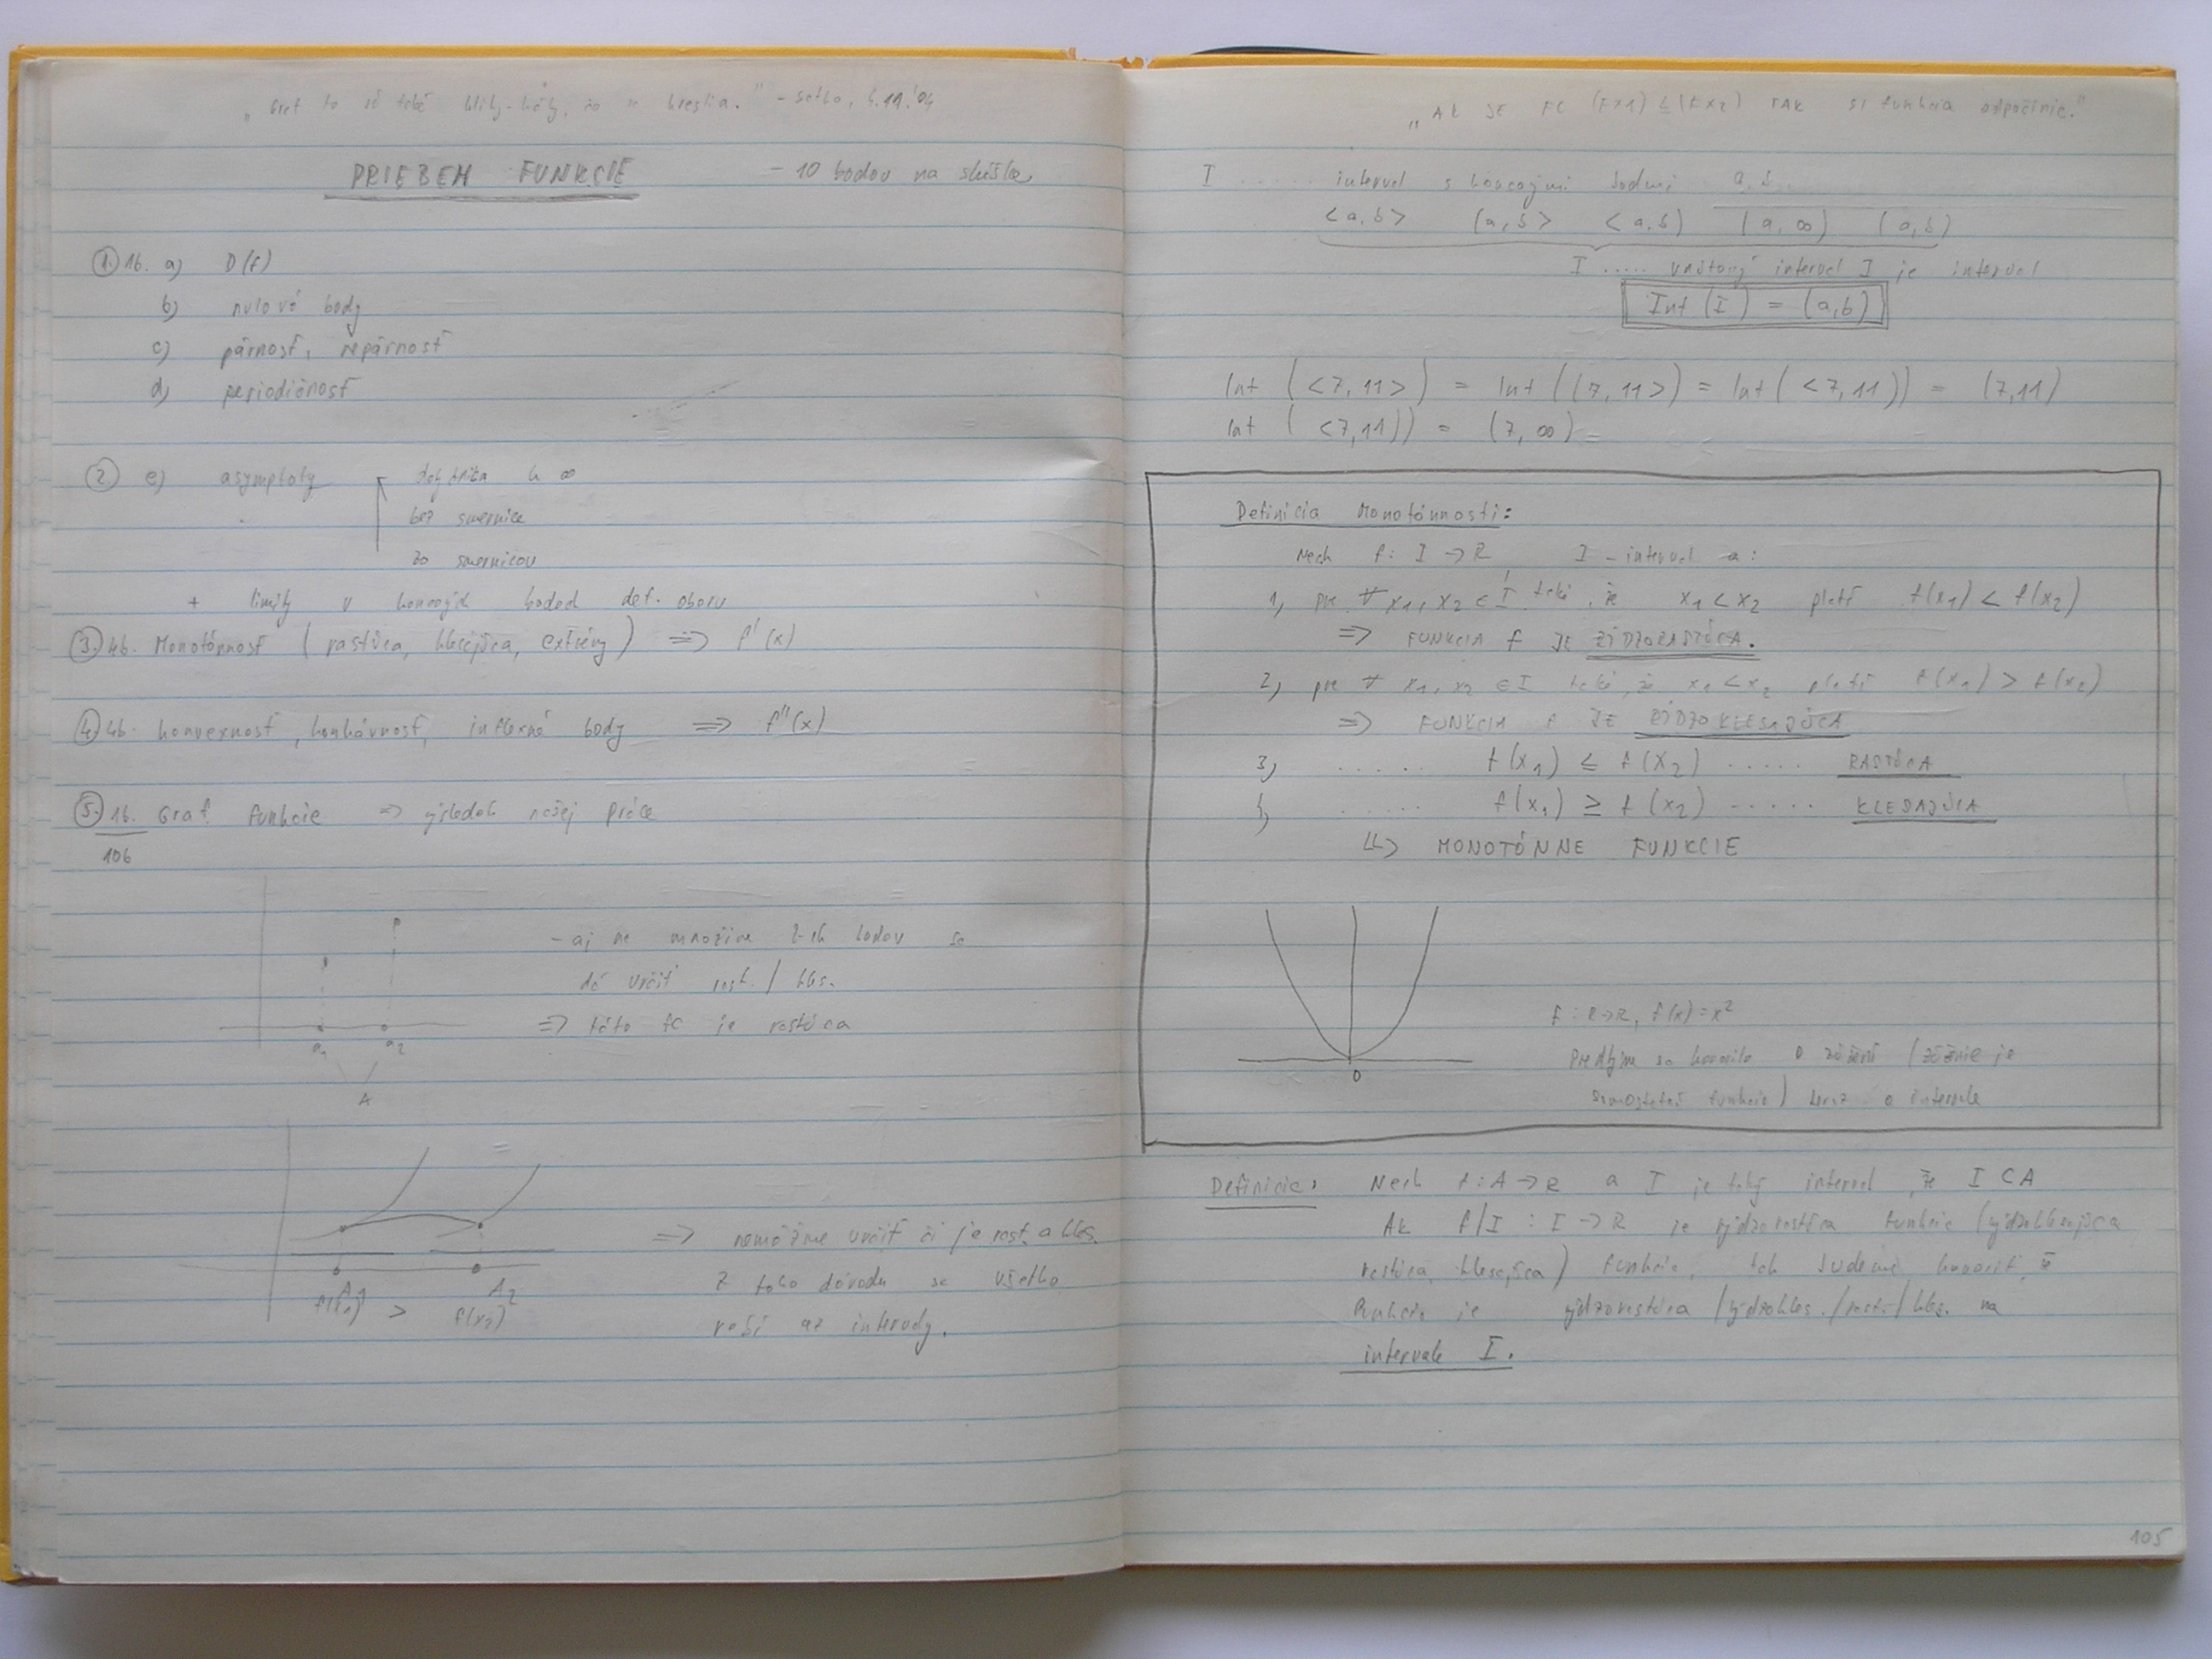 „ to sú také , čo sa kreslia." - 
PRIEBEH FUNKCIE - 10 bodov na skúške
1. 1b. a) D(f)
b) nulové body
c) párnosť, nepárnosť
d) periodičnosť
2 e) asymptoty k ∞
bez smernice
zo smernicou
+ limity v koncových bodoch def. oboru
3. 4b. Monotónnosť (rastúca, klesajúca, extrémy) => f'(x)
4. 4b. konvexnosť, konkávnosť, inflexné body => f''(x)
5. 1b. Graf funkcie => výsledok našej práce
10b
- aj na množine 2-ch bodov sa
dá určiť rast. / kles.
=> táto fc je rastúca
a1 a2
A
=> nemôžme určiť či je rast. a kles.
Z toho dôvodu sa všetko
rieši na intervaly.
A1 A2
f(x1) > f(x2)
„AK JE FC (FX1) ≤ (FX2) TAK si funkcia odpočinie."
I ..... interval s koncovými bodmi a, b
<a,b> (a,b> <a,b) (a,∞) (a,b)
I ..... vnútorný interval I je interval
Int (I) = (a,b)
Int (<7,11>) = Int ((7,11>) = Int (<7,11)) = (7,11)
Int (<7,11)) = (7,∞) =
Definícia Monotónnosti:
Nech f: I -> R I - interval a:
1, pre ∀ x1, x2 ∈ I také, že x1 < x2 platí f(x1) < f(x2)
=> FUNKCIA f JE RÝDZORASTÚCA.
2, pre ∀ x1, x2 ∈ I také, že x1 < x2 platí f(x1) > f(x2)
=> FUNKCIA f JE RÝDZOKLESAJÚCA
3, ..... f(x1) ≤ f(x2) ..... RASTÚCA
4, ..... f(x1) ≥ f(x2) ..... KLESAJÚCA
=> MONOTÓNNE FUNKCIE
f: R->R, f(x) = x²
Predtým sa hovorilo o zúžení (zúženie je
0
samostatná funkcia) teraz o intervale
Definícia: Nech f: A -> R a I je taký interval, že I ⊂ A
Ak f/I : I -> R je rýdzorastúca funkcia (rýdzoklesajúca
rastúca, klesajúca) funkcia, tak budeme hovoriť, že
funkcia je rýdzorastúca /rýdzokles./rast./kles. na
intervale I.
105